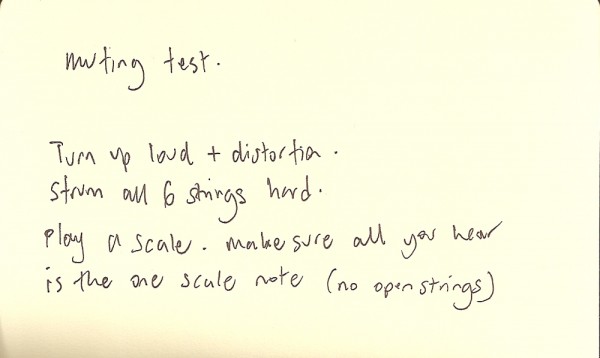 muting test.
Turn up loud + distortion.
Strum all 6 strings hard.
Play a scale. make sure all you hear
is the one scale note (no open strings)